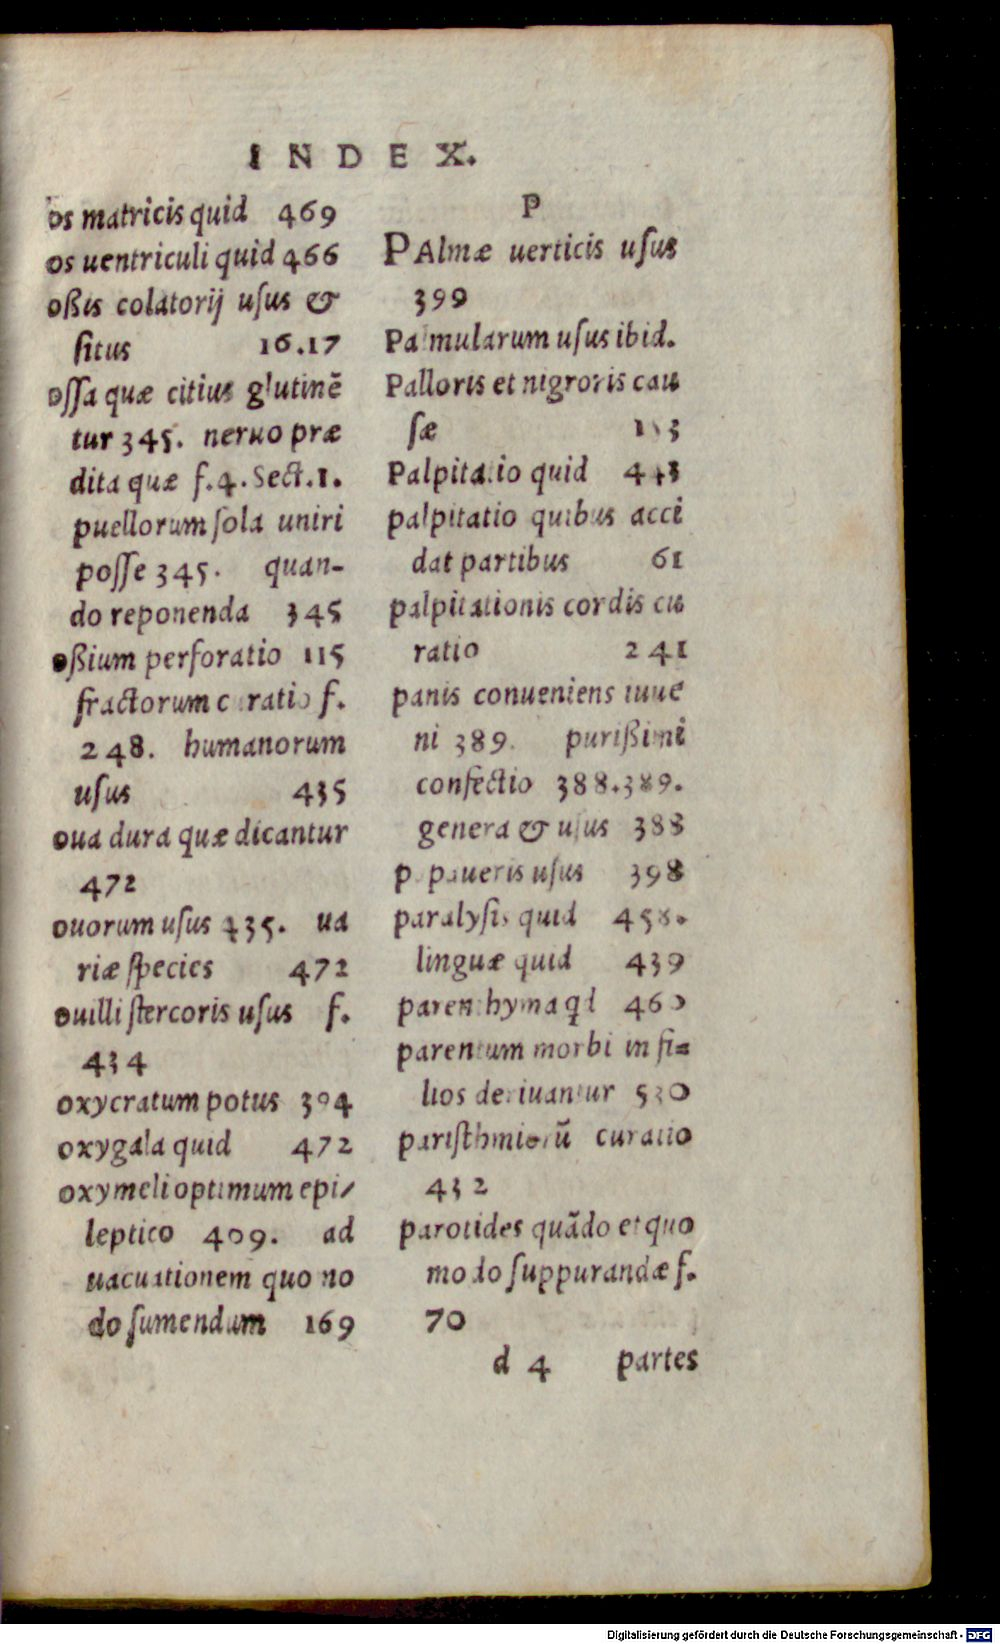 INDEX.
os matricis quid 469
os uentriculi quid 466
oßis colatorij uſus &
ſitus 16.17
oſſa quæ citius glutinē
tur 345. neruo præ
dita quæ f.4. Sect.1.
puellorum ſola uniri
poſſe 345. quan-
do reponenda 345
oßium perforatio 115
fractorum curatio f.
248. humanorum
uſus 435
oua dura quæ dicantur
472
ouorum uſus 435. ua
riæ ſpecies 472
ouilli ſtercoris uſus f.
434
oxycratum potus 394
oxygala quid 472
oxymeli optimum epi/
leptico 409. ad
uacuationem quo no
do ſumendum 169
P
PAlmæ uerticis uſus
399
Palmularum uſus ibid.
Palloris et nigroris cau
ſæ
Palpitatio quid 443
palpitatio quibus acci
dat partibus 61
palpitationis cordis cu
ratio 241
panis conueniens iuue
ni 389. purißimi
confectio 388.389.
genera & uſus 388
papaueris uſus 398
paralyſis quid 458.
linguæ quid 439
parenchyma qd 460
parentum morbi in fi=
lios deriuantur 530
pariſthmiorū curatio
432
parotides quādo et quo
modo ſuppurandæ f.
70
d 4 partes
Digitalisierung gefördert durch die Deutsche Forschungsgemeinschaft - DFG